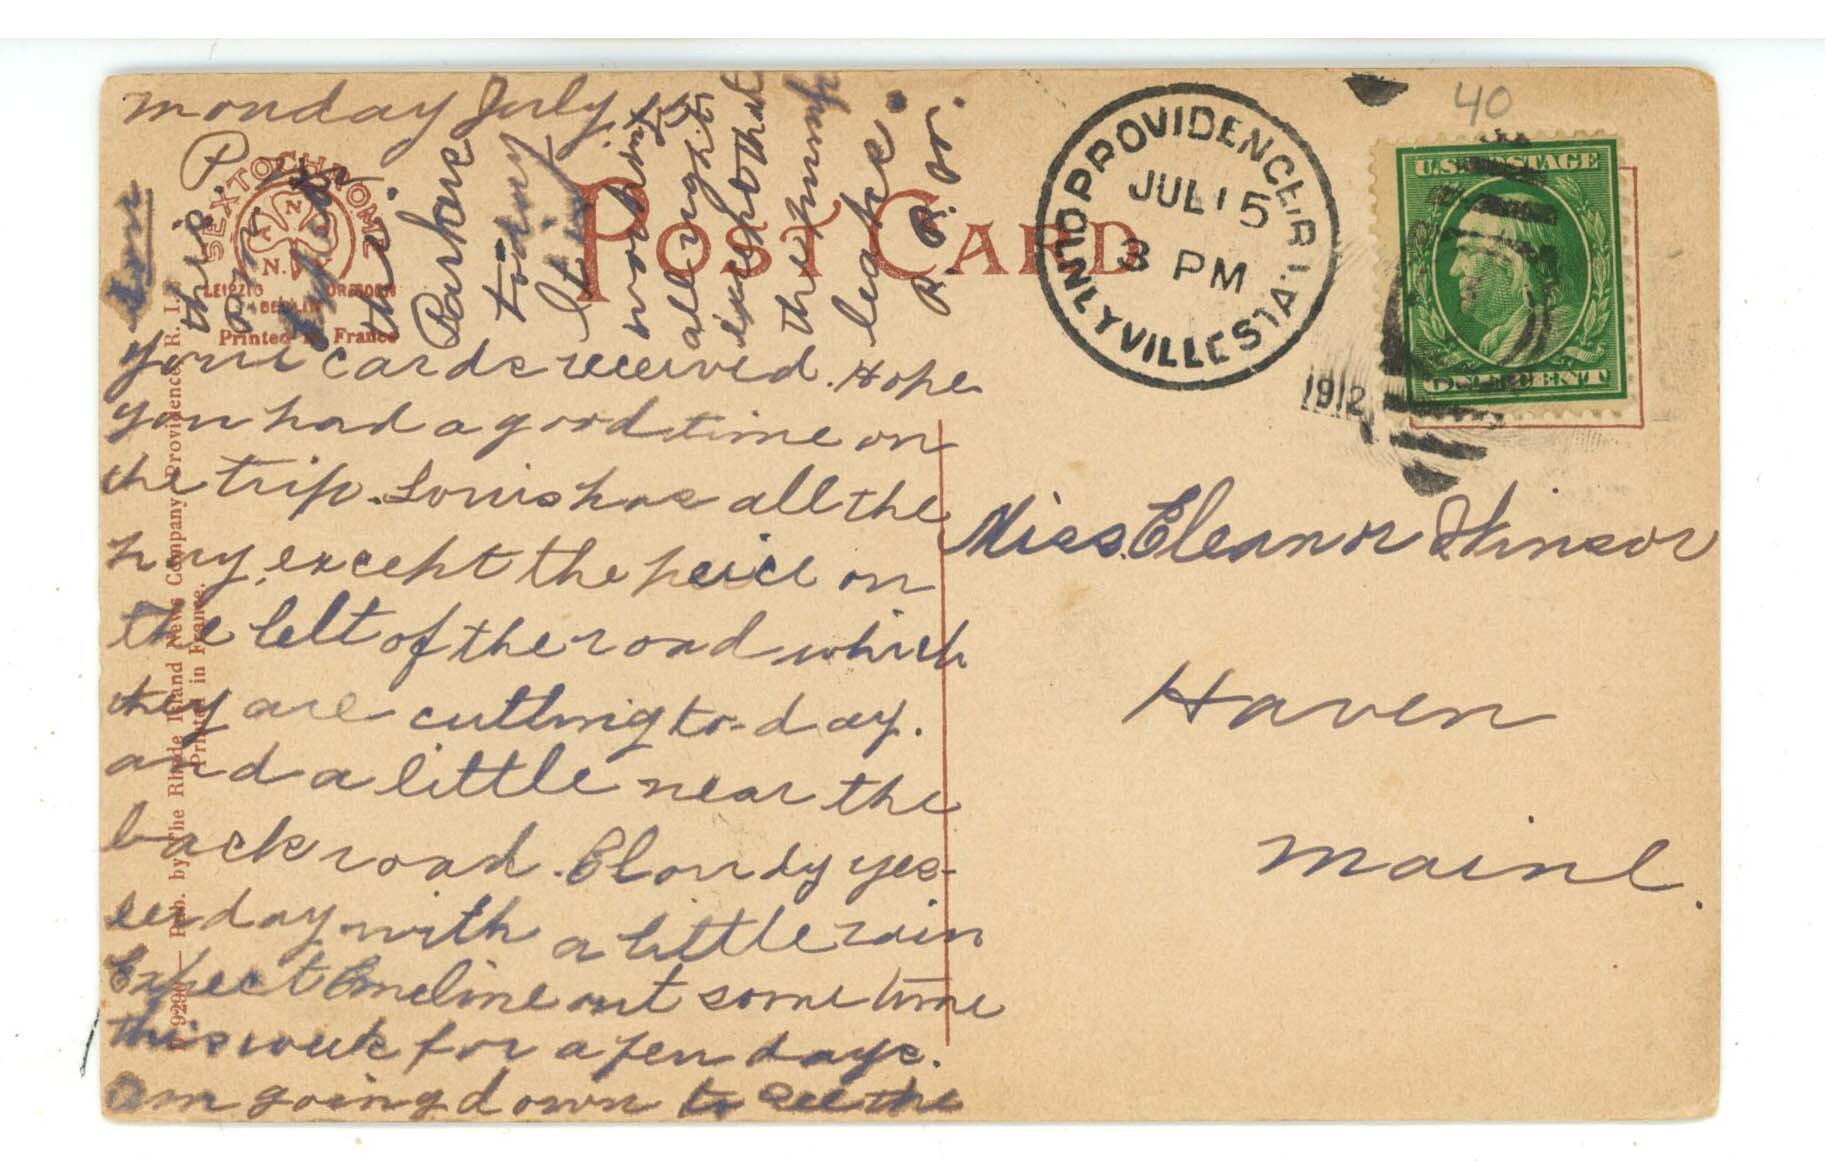 monday July 15
your cards received. Hope
you had a good time on
the trip. Louis has all the
hay, except the peice on
the left of the road which
they are cutting to-day.
and a little near the
back road. Cloudy yes-
terday with a little rain
Expect Emeline out some time
this week for a few days.
Am going down to see the
this P.
the
Parkers
today
It is
working
allright
except that
the pump
leaks.
R. B. W.
SEXTOCHROME
A N
N. Y.
LEIPZIG DRESDEN
BERLIN
Printed in France
POST CARD
PROVIDENCE, R.I.
JUL 15
3 PM
OLNEYVILLE STA.
1912
40
U.S. POSTAGE
ONE CENT 1
Miss. Eleanor Winsor
Haven
Maine.
Pub. by The Rhode Island News Company, Providence, R. I.
Printed in France.